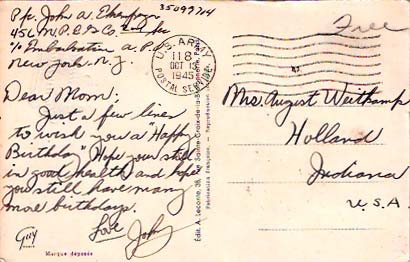 Pfc. John A. 35099704
456 M.P.E.G Co.
% Embarkation A.P.O
New York - N.Y.
Free
U.S. ARMY
118
OCT 13
1945
POSTAL SERVICE
Dear Mom:
Just a few lines
to wish you a "Happy
Birthday" Hope your still
in good health and hope
you still have many
more birthdays.
Love
John
Mrs. August Weitkamp
Holland
Indiana
U.S.A.
Édit. A. Leconte, 38, Rue Sainte-Croix-de-la-Bretonnerie, Paris
Fabrication française. - Reproduction
Guy
Marque déposée